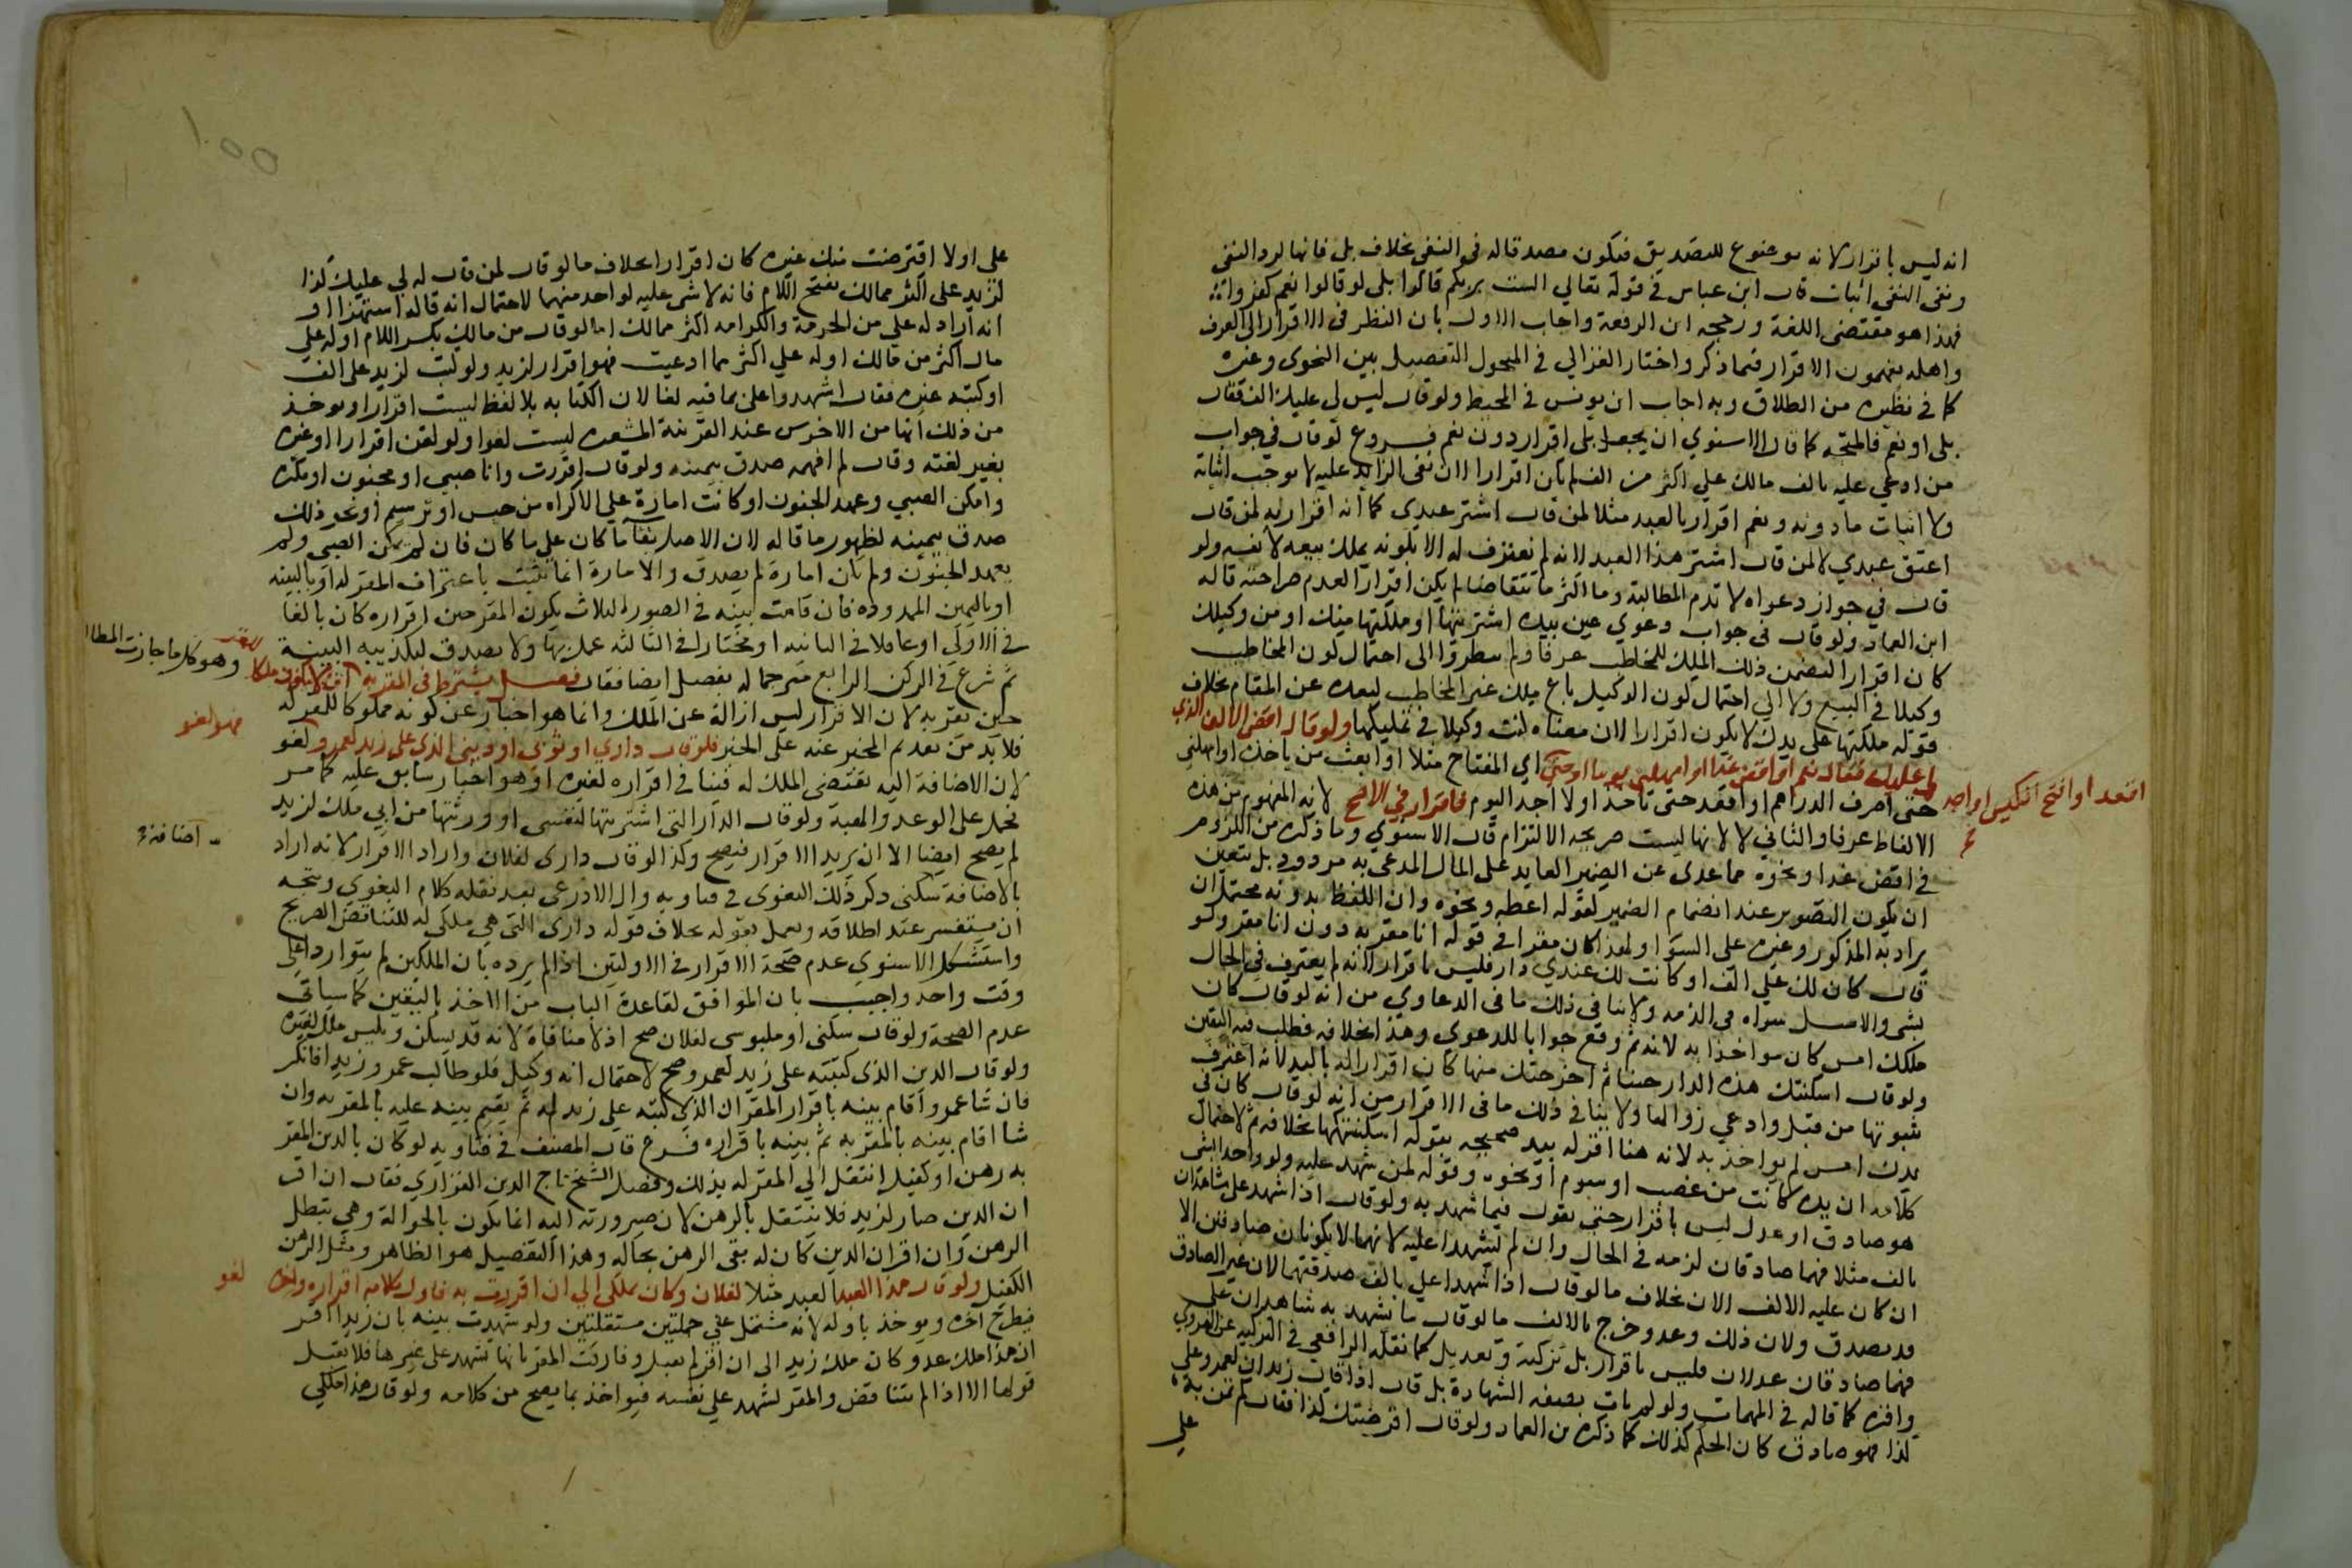 انه ليس باقرار لانه موضوع للتصديق فيكون مصدقا له في النفي بخلاف بلى فانها لرد النفي
ونفي النفي اثبات قال ابن عباس في قوله تعالى الست بربكم قالوا بلى لو قالوا نعم كفروا
فهذا هو مقتضى اللغة ورجحه ابن الرفعة واجاب الاول بان النظر في الاقرار الى العرف
واهله يفهمون الاقرار فيما ذكر واختار الغزالي في المنحول التفصيل بين النحوي وغيره
كما في نظيره من الطلاق وبه اجاب ابن يونس في المحيط ولو قال ليس لي عليك الف فقال
بلى او نعم فالمتجه كما قال الاسنوي ان يجعل بلى اقرار دون نعم فروع لو قال في جواب
من ادعي عليه بالف مالك علي اكثر من الف لم يكن اقرارا لان نفي الزايد عليه لا يوجب اثباته
ولا اثبات ما دونه ونعم اقرار بالعبد مثلا لمن قال اشتر عبدي كما انه اقرار به لمن قال
اعتق عبدي لا لمن قال اشتر هذا العبد لانه لم يعترف له الا بكونه يملك بيعه لا نفسه ولو
قال في جواز دعواه لا تدم المطالبة وما اكثر ما تتقاضا لم يكن اقرارا لعدم صراحته قاله
ابن العماد ولو قال في جواب دعوي عين بيده اشتريتها او ملكتها منك او من وكيلك
كان اقرارا لتضمن ذلك الملك للمخاطب عرفا ولم ينظروا الى احتمال كون المخاطب
وكيلا في البيع ولا الي احتمال كون الوكيل باع ملك غير المخاطب لبعده عن المقام بخلاف
قوله ملكتها على يدك لا يكون اقرارا لان معناه كنت وكيلا في تمليكها ولو قال اقض الالف الذي
لي عليك فقال نعم او اقض غدا او امهلني يوما او حتى اي المفتاح مثلا او ابعث من ياخذ او امهلني
اقعد او افتح الكيس او اجد
حتى اصرف الدراهم او اقعد حتى تاخذ او لا اجد اليوم فاقرار في الاصح لانه المفهوم من هذه
الالفاظ عرفا والثاني لا لانها ليست صريحه الالتزام قال الاسنوي وما ذكره من اللزوم
في اقض غدا ونحوه مما عدي عن الضمير العايد على المال المدعى به مردود بل يتعين
ان يكون التصوير عند انضمام الضمير لقوله اعطه ونحوه وان اللفظ بدونه محتمل ان
يراد به المذكور وغيره على السوا ولهذا كان مقرا في قوله انا مقر به دون انا مقر ولو
قال كان لك علي الف او كانت لك عندي دار فليس باقرار لانه لم يعترف في الحال
بشي والاصل براه في الذمه ولا ينافي ذلك ما في الدعاوي من انه لو قال كان
ملكك امس كان مواخذا به لانه ثم وقع جوابا للدعوى وهذا بخلافه فطلب فيه اليقين
ولو قال اسكنتك هذه الدار حينا ثم اخرجتك منها كان اقرارا له باليد لانه اعترف
بثبوتها من قبل وادعي زوالها ولا ينافي ذلك ما في الاقرار من انه لو قال كان في
يدك امس لم يواخذ به لانه هنا اقر له بيد صحيحه بقوله اسكنتكها بخلافه ثم لاحتمال
كلامه ان يده كانت من غصب او سوم او نحوه وقوله لمن شهد عليه ولو واحدا بشي
هو صادق او عدل ليس باقرار حتى يقول فيما شهد به ولو قال اذا شهد علي شاهدان
بالف مثلا فهما صادقان لزمه في الحال وان لم يشهدا عليه لانهما لا يكونان صادقين الا
ان كان عليه الالف الان بخلاف ما لو قال اذا شهدا علي بالف صدقتهما لان غير الصادق
قد يصدق ولان ذلك وعد وخرج بالالف ما لو قال ما يشهد به شاهدان علي
فهما صادقان عدلان فليس باقرار بل تزكية وتعديل كما نقله الرافعي في التزكيه عن الهروي
واقره كما قاله في المهمات ولو لم يات بصيغه الشهادة بل قال اذا قال زيد ان لعمرو علي
كذا فهو صادق كان الحكم كذلك كما ذكره بن العماد ولو قال اقرضتك كذا فقال
علي
على اولا اقترضت منك غيره كان اقرارا بخلاف ما لو قال لمن قال له لي عليك كذا
لزيد على اكثر ممالك بفتح اللام فانه لا شي عليه لواحد منهما لاحتمال انه قاله استهزا او
انه اراد له علي من الحرمة والكرامه اكثر ممالك اما لو قال من مالك بكسر اللام او له علي
مال اكثر من مالك او له علي اكثر مما ادعيت فهو اقرار لزيد ولو كتب لزيد علي الف
او كتبه غيره فقال اشهدوا على بما فيه لغا لان الكتابه بلا لفظ ليست اقرارا ويوخذ
من ذلك انها من الاخرس عند القرينة المشعره ليست لغوا ولو لقن اقرارا او غيره
بغير لغته وقال لم افهمه صدق بيمينه ولو قال اقررت وانا صبي او مجنون او مكره
وامكن الصبي وعهد الجنون او كانت امارة علي الاكراه من حبس او ترسيم او نحو ذلك
صدق بيمينه لظهور ما قاله لان الاصل بقآ ما كان علي ما كان فان لم يمكن الصبي ولم
يعهد الجنون ولم تكن امارة لم يصدق والامارة انما تثبت باعتراف المقر له او بالبينه
او باليمين المردوده فان قامت بينه في الصور الثلاث بكون المقر حين اقراره كان بالغا
في الاولى او عاقلا في الثانيه او مختارا في الثالثه عمل بها ولا يصدق لتكذيبه البينة
ثم شرع في الركن الرابع مترجما له بفصل ايضا فقال فصل يشترط في المقر به ان لا يكون ملكا
للمقر وهو كل ما جازت المطال
حين يقر به لان الاقرار ليس ازالة عن الملك وانما هو اخبار عن كونه مملوكا للمقر له
فلا بد من تقدم المخبر عنه على الخبر فلو قال داري او ثوبي او ديني الذي على زيد لعمرو لغو
فهو لغو
لان الاضافة اليه تقتضى الملك له فينافي اقراره لغيره اذ هو اخبار سابق عليه كما مر
فحمل على الوعد والهبة ولو قال الدار التي اشتريتها لنفسى او ورثتها من ابي ملك لزيد
لم يصح ايضا الا ان يريد الاقرار فيصح وكذا لو قال دارى لفلان واراد الاقرار لانه اراد
اضافة
بالاضافة سكنى ذكر ذلك البغوى في فتاويه وال الاذرعي بعد نقله كلام البغوي ويتجه
ان يستفسر عند اطلاقه ويعمل بقوله بخلاف قوله دارى التي هي ملكي له للتناقض الصريح
واستشكل الاسنوي عدم صحة الاقرار في الاوليين اذا لم يرده بان الملكين لم يتواردا على
وقت واحد واجيب بان الموافق لقاعدة الباب من الاخذ باليقين كما سياتي
عدم الصحة ولو قال سكنى او ملبوسى لفلان صح اذ لا منافاة لانه قد يسكن ويلبس ملك غيره
ولو قال الدين الذي كتبته على زيد لعمرو صح لاحتمال انه وكيل فلو طالب عمرو زيدا فانكر
فان شا عمرو اقام بينه باقرار المقر ان الذي كتبه علي زيد له ثم يقيم بينه عليه بالمقر به وان
شا اقام بينه بالمقر به ثم بينه باقراره فرع قال المصنف في فتاويه لو كان بالدين المقر
به رهن او كفيل انتقل الي المقر له بذلك وفصل الشيخ تاج الدين الفزاري فقال ان اقر
ان الدين صار لزيد فلا ينتقل بالرهن لان صيرورته اليه انما يكون بالحوالة وهي تبطل
الرهن وان اقر ان الدين كان له بقي الرهن بحاله وهذا التفصيل هو الظاهر ومثل الرهن
الكفيل ولو قال هذا العبد لعبد مثلا لفلان وكان ملكي الي ان اقررت به فاول كلامه اقرار واخره
لغو
فيطرح اخره ويوخذ باوله لانه مشتمل علي جملتين مستقلتين ولو شهدت بينه بان زيدا اقر
ان هذا ملك عمرو وكان ملك زيد الى ان اقر لم يقبل وفارقت المقر بانها تشهد على غيرها فلا يقبل
قولها الا اذا لم يتناقض والمقر يشهد علي نفسه فيواخذ بما يصح من كلامه ولو قال هذا ملكي